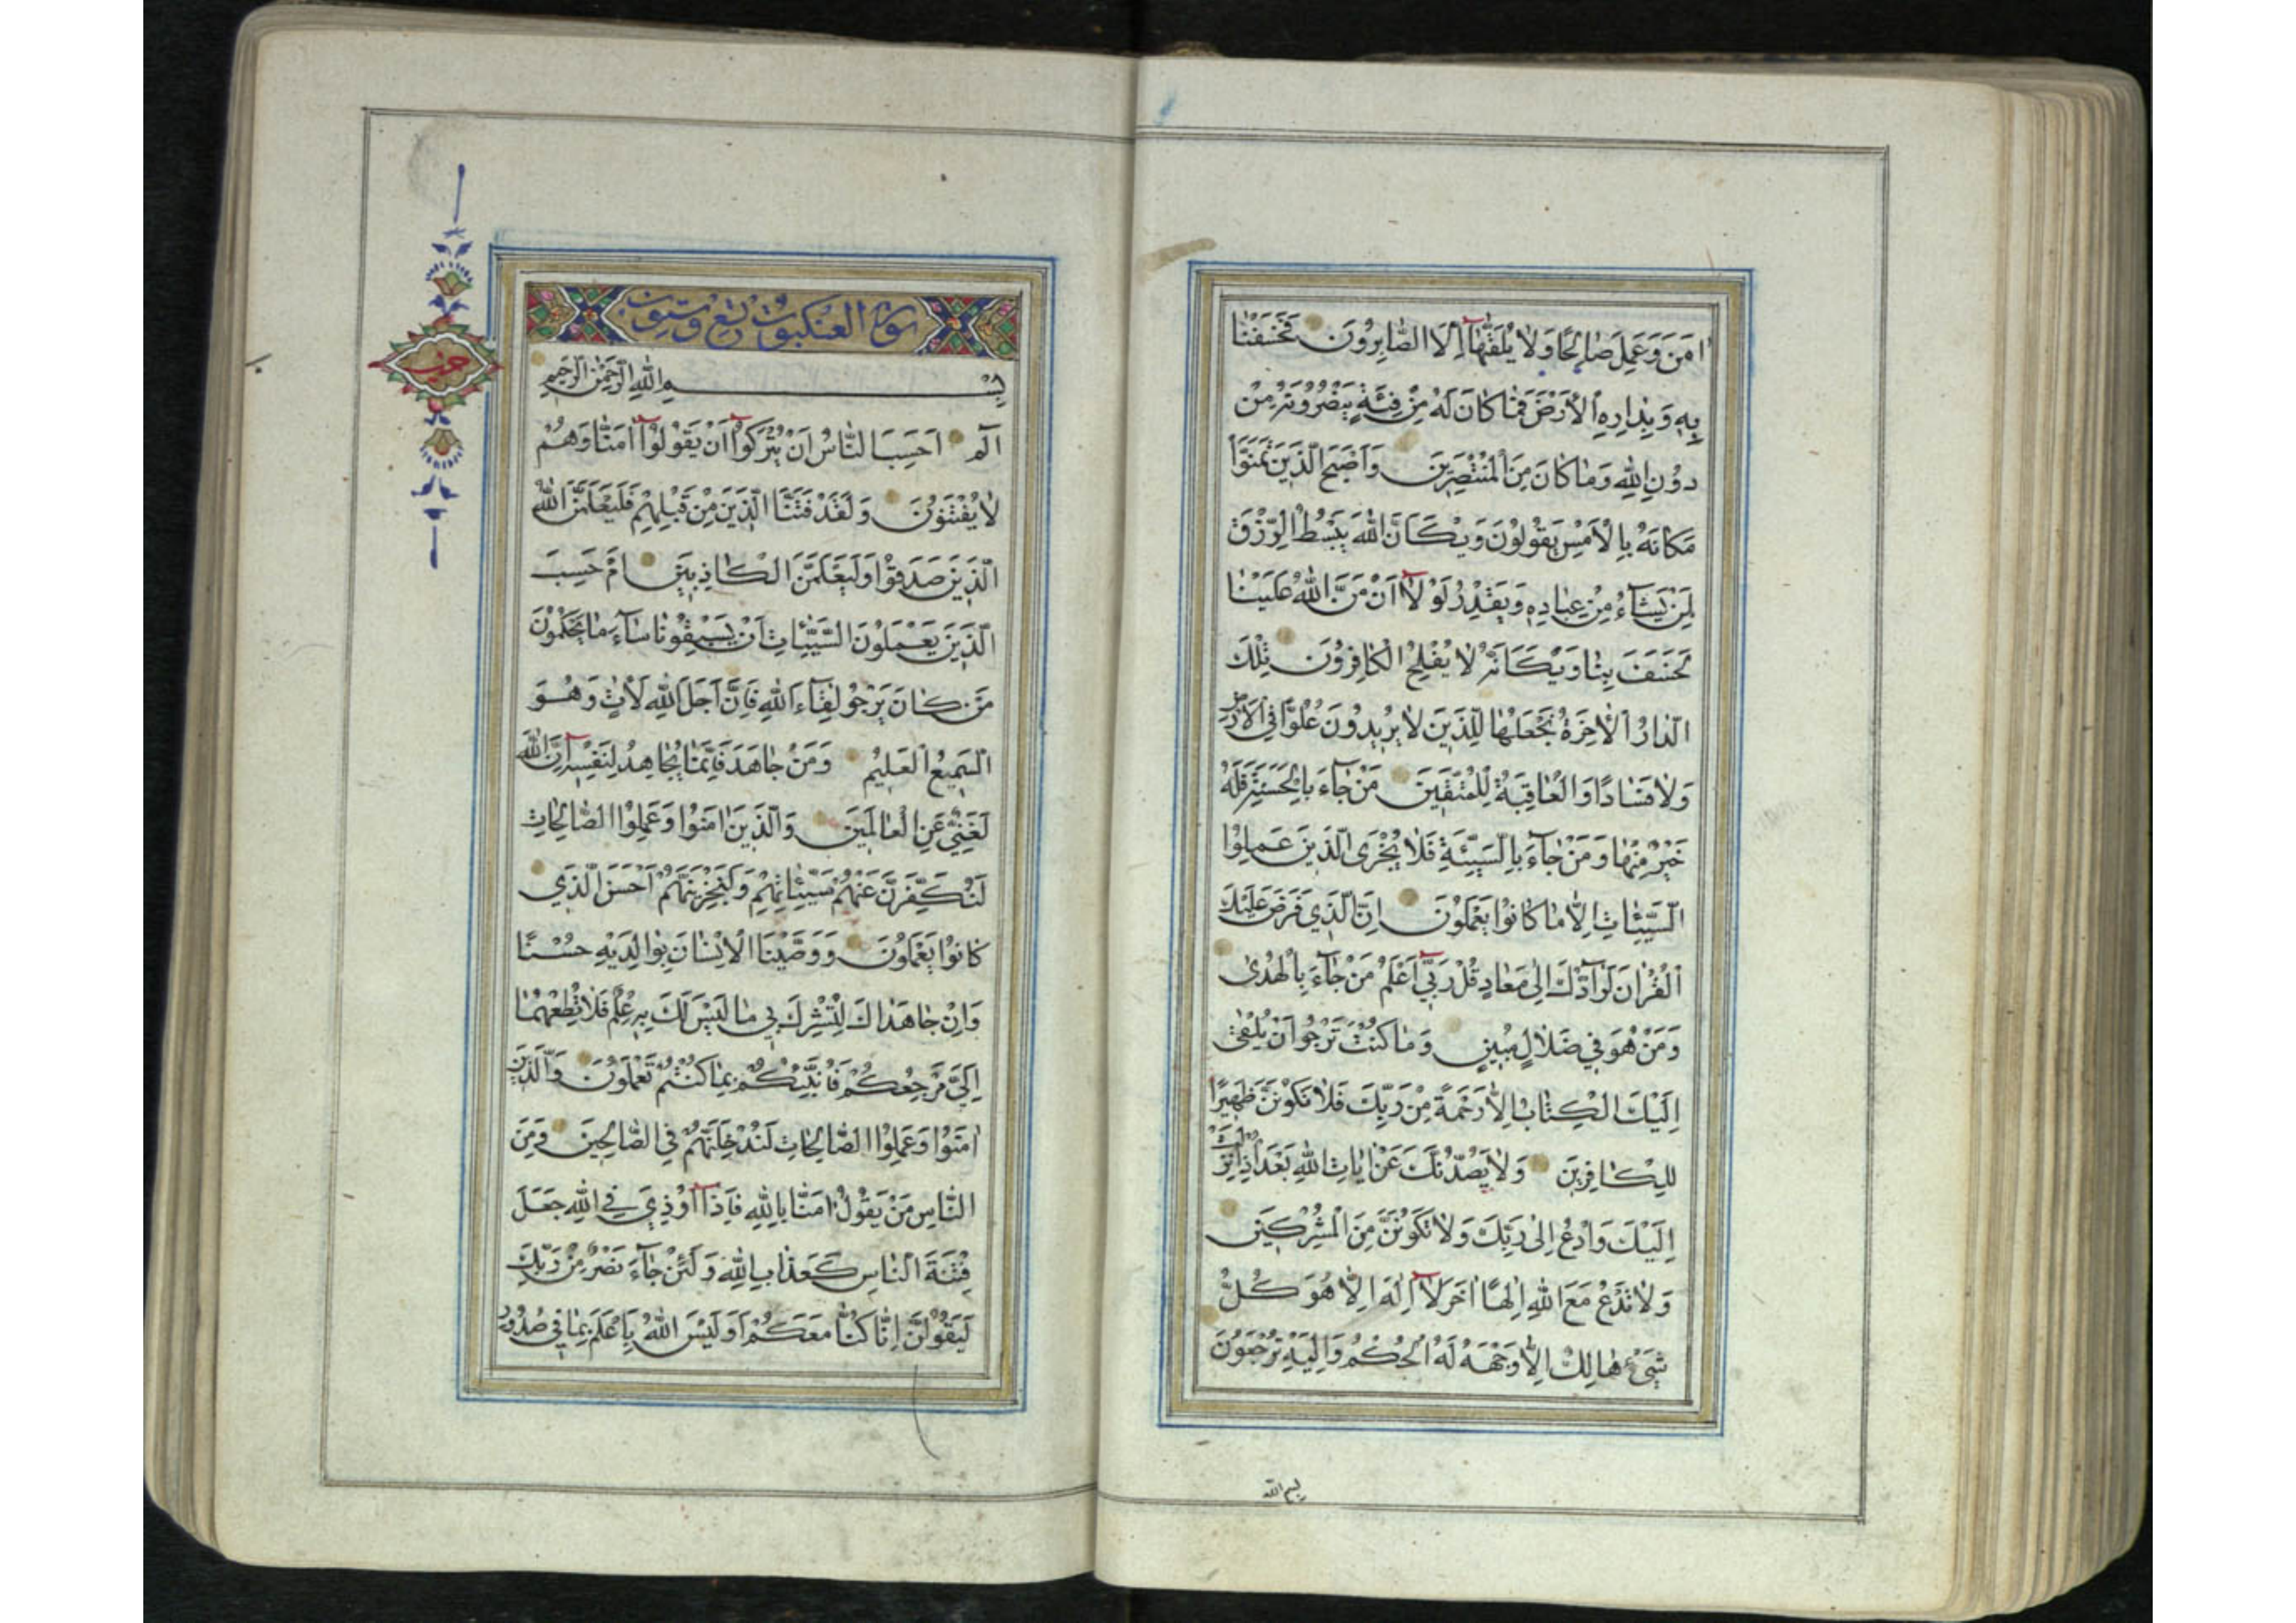 اٰمَنَ وَعَمِلَ صٰالِحًا وَلٰا يُلَقّٰيهٰٓا اِلَّا الصّٰابِرُونَ فَخَسَفْنٰا
بِهٖ وَبِدٰارِهِ الْاَرْضَ فَمٰا كٰانَ لَهُ مِنْ فِئَةٍ يَنْصُرُونَهُ مِنْ
دُونِ اللّٰهِ وَمٰا كٰانَ مِنَ الْمُنْتَصِرِينَ وَاَصْبَحَ الَّذِينَ تَمَنَّوْا
مَكٰانَهُ بِالْاَمْسِ يَقُولُونَ وَيْكَاَنَّ اللّٰهَ يَبْسُطُ الرِّزْقَ
لِمَنْ يَشٰٓاءُ مِنْ عِبٰادِهٖ وَيَقْدِرُ لَوْلٰٓا اَنْ مَنَّ اللّٰهُ عَلَيْنٰا
لَخَسَفَ بِنٰا وَيْكَاَنَّهُ لٰا يُفْلِحُ الْكٰافِرُونَ تِلْكَ
الدّٰارُ الْاٰخِرَةُ نَجْعَلُهٰا لِلَّذِينَ لٰا يُرِيدُونَ عُلُوًّا فِي الْاَرْضِ
وَلٰا فَسٰادًا وَالْعٰاقِبَةُ لِلْمُتَّقِينَ مَنْ جٰٓاءَ بِالْحَسَنَةِ فَلَهُ
خَيْرٌ مِنْهٰا وَمَنْ جٰٓاءَ بِالسَّيِّئَةِ فَلٰا يُجْزَى الَّذِينَ عَمِلُوا
السَّيِّئٰاتِ اِلّٰا مٰا كٰانُوا يَعْمَلُونَ اِنَّ الَّذِي فَرَضَ عَلَيْكَ
الْقُرْاٰنَ لَرٰٓادُّكَ اِلٰى مَعٰادٍ قُلْ رَبِّٓي اَعْلَمُ مَنْ جٰٓاءَ بِالْهُدٰى
وَمَنْ هُوَ فِي ضَلٰالٍ مُبِينٍ وَمٰا كُنْتَ تَرْجُوا اَنْ يُلْقٰى
اِلَيْكَ الْكِتٰابُ اِلّٰا رَحْمَةً مِنْ رَبِّكَ فَلٰا تَكُونَنَّ ظَهِيرًا
لِلْكٰافِرِينَ وَلٰا يَصُدُّنَّكَ عَنْ اٰيٰاتِ اللّٰهِ بَعْدَ اِذْ اُنْزِلَتْ
اِلَيْكَ وَادْعُ اِلٰى رَبِّكَ وَلٰا تَكُونَنَّ مِنَ الْمُشْرِكِينَ
وَلٰا تَدْعُ مَعَ اللّٰهِ اِلٰهًا اٰخَرَ لٰٓا اِلٰهَ اِلّٰا هُوَ كُلُّ
شَيْءٍ هٰالِكٌ اِلّٰا وَجْهَهُ لَهُ الْحُكْمُ وَاِلَيْهِ تُرْجَعُونَ
بسم الله
سورة العنكبوت تسع وستون
حزب
بِسْمِ اللّٰهِ الرَّحْمٰنِ الرَّحِيمِ
الٓمٓ اَحَسِبَ النّٰاسُ اَنْ يُتْرَكُوٓا اَنْ يَقُولُوٓا اٰمَنّٰا وَهُمْ
لٰا يُفْتَنُونَ وَلَقَدْ فَتَنَّا الَّذِينَ مِنْ قَبْلِهِمْ فَلَيَعْلَمَنَّ اللّٰهُ
الَّذِينَ صَدَقُوا وَلَيَعْلَمَنَّ الْكٰاذِبِينَ اَمْ حَسِبَ
الَّذِينَ يَعْمَلُونَ السَّيِّئٰاتِ اَنْ يَسْبِقُونٰا سٰٓاءَ مٰا يَحْكُمُونَ
مَنْ كٰانَ يَرْجُو لِقٰٓاءَ اللّٰهِ فَاِنَّ اَجَلَ اللّٰهِ لَاٰتٍ وَهُوَ
السَّمِيعُ الْعَلِيمُ وَمَنْ جٰاهَدَ فَاِنَّمٰا يُجٰاهِدُ لِنَفْسِهٖٓ اِنَّ اللّٰهَ
لَغَنِيٌّ عَنِ الْعٰالَمِينَ وَالَّذِينَ اٰمَنُوا وَعَمِلُوا الصّٰالِحٰاتِ
لَنُكَفِّرَنَّ عَنْهُمْ سَيِّئٰاتِهِمْ وَلَنَجْزِيَنَّهُمْ اَحْسَنَ الَّذِي
كٰانُوا يَعْمَلُونَ وَوَصَّيْنَا الْاِنْسٰانَ بِوٰالِدَيْهِ حُسْنًا
وَاِنْ جٰاهَدٰاكَ لِتُشْرِكَ بِي مٰا لَيْسَ لَكَ بِهٖ عِلْمٌ فَلٰا تُطِعْهُمٰا
اِلَيَّ مَرْجِعُكُمْ فَاُنَبِّئُكُمْ بِمٰا كُنْتُمْ تَعْمَلُونَ وَالَّذِينَ
اٰمَنُوا وَعَمِلُوا الصّٰالِحٰاتِ لَنُدْخِلَنَّهُمْ فِي الصّٰالِحِينَ وَمِنَ
النّٰاسِ مَنْ يَقُولُ اٰمَنّٰا بِاللّٰهِ فَاِذٰٓا اُوذِيَ فِي اللّٰهِ جَعَلَ
فِتْنَةَ النّٰاسِ كَعَذٰابِ اللّٰهِ وَلَئِنْ جٰٓاءَ نَصْرٌ مِنْ رَبِّكَ
لَيَقُولُنَّ اِنّٰا كُنّٰا مَعَكُمْ اَوَلَيْسَ اللّٰهُ بِاَعْلَمَ بِمٰا فِي صُدُورِ